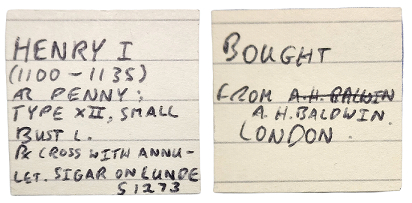 HENRY I
(1100 - 1135)
AR PENNY;
TYPE XII, SMALL
BUST L.
Rx CROSS WITH ANNU-
LET. SIGAR ON LUNDE
S 1273
BOUGHT
FROM A.H. BALWIN
A.H. BALDWIN
LONDON.